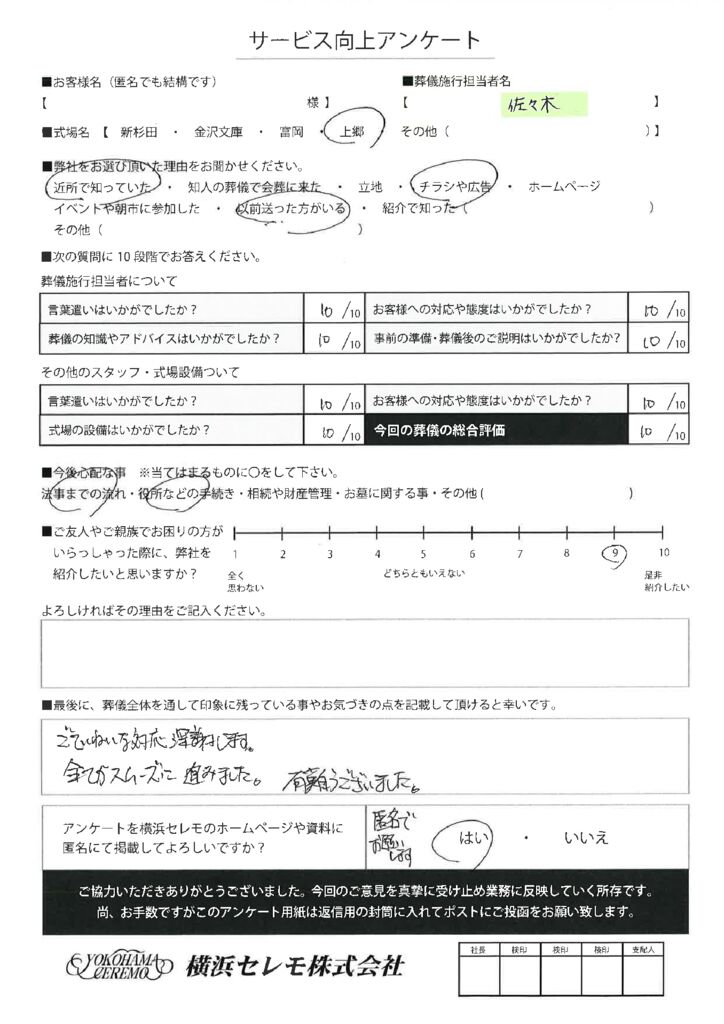 サービス向上アンケート
■お客様名（匿名でも結構です）
■葬儀施行担当者名
【 様】
【 佐々木 】
■式場名【 新杉田 ・ 金沢文庫 ・ 富岡 ・ 上郷 ・ その他（ ）】
■弊社をお選び頂いた理由をお聞かせください。
近所で知っていた ・ 知人の葬儀で会葬に来た ・ 立地 ・ チラシや広告 ・ ホームページ
イベントや朝市に参加した ・ 以前送った方がいる ・ 紹介で知った（ ）
その他（ ）
■次の質問に10段階でお答えください。
葬儀施行担当者について
言葉遣いはいかがでしたか？ 10 /10 お客様への対応や態度はいかがでしたか？ 10 /10
葬儀の知識やアドバイスはいかがでしたか？ 10 /10 事前の準備・葬儀後のご説明はいかがでしたか？ 10 /10
その他のスタッフ・式場設備ついて
言葉遣いはいかがでしたか？ 10 /10 お客様への対応や態度はいかがでしたか？ 10 /10
式場の設備はいかがでしたか？ 10 /10 今回の葬儀の総合評価 10 /10
■今後心配な事 ※当てはまるものに〇をして下さい。
法事までの流れ・役所などの手続き・相続や財産管理・お墓に関する事・その他( )
■ご友人やご親族でお困りの方が
いらっしゃった際に、弊社を
紹介したいと思いますか？
1 2 3 4 5 6 7 8 9 10
全く
思わない
どちらともいえない
是非
紹介したい
よろしければその理由をご記入ください。
■最後に、葬儀全体を通して印象に残っている事やお気づきの点を記載して頂けると幸いです。
ごていねいな対応 深謝します。
全てがスムーズに 進みました。 有難うございました。
アンケートを横浜セレモのホームページや資料に
匿名にて掲載してよろしいですか？
匿名で
お願い
します
はい ・ いいえ
ご協力いただきありがとうございました。今回のご意見を真摯に受け止め業務に反映していく所存です。
尚、お手数ですがこのアンケート用紙は返信用の封筒に入れてポストにご投函をお願い致します。
YOKOHAMA
CEREMO
横浜セレモ株式会社
社長 検印 検印 検印 支配人